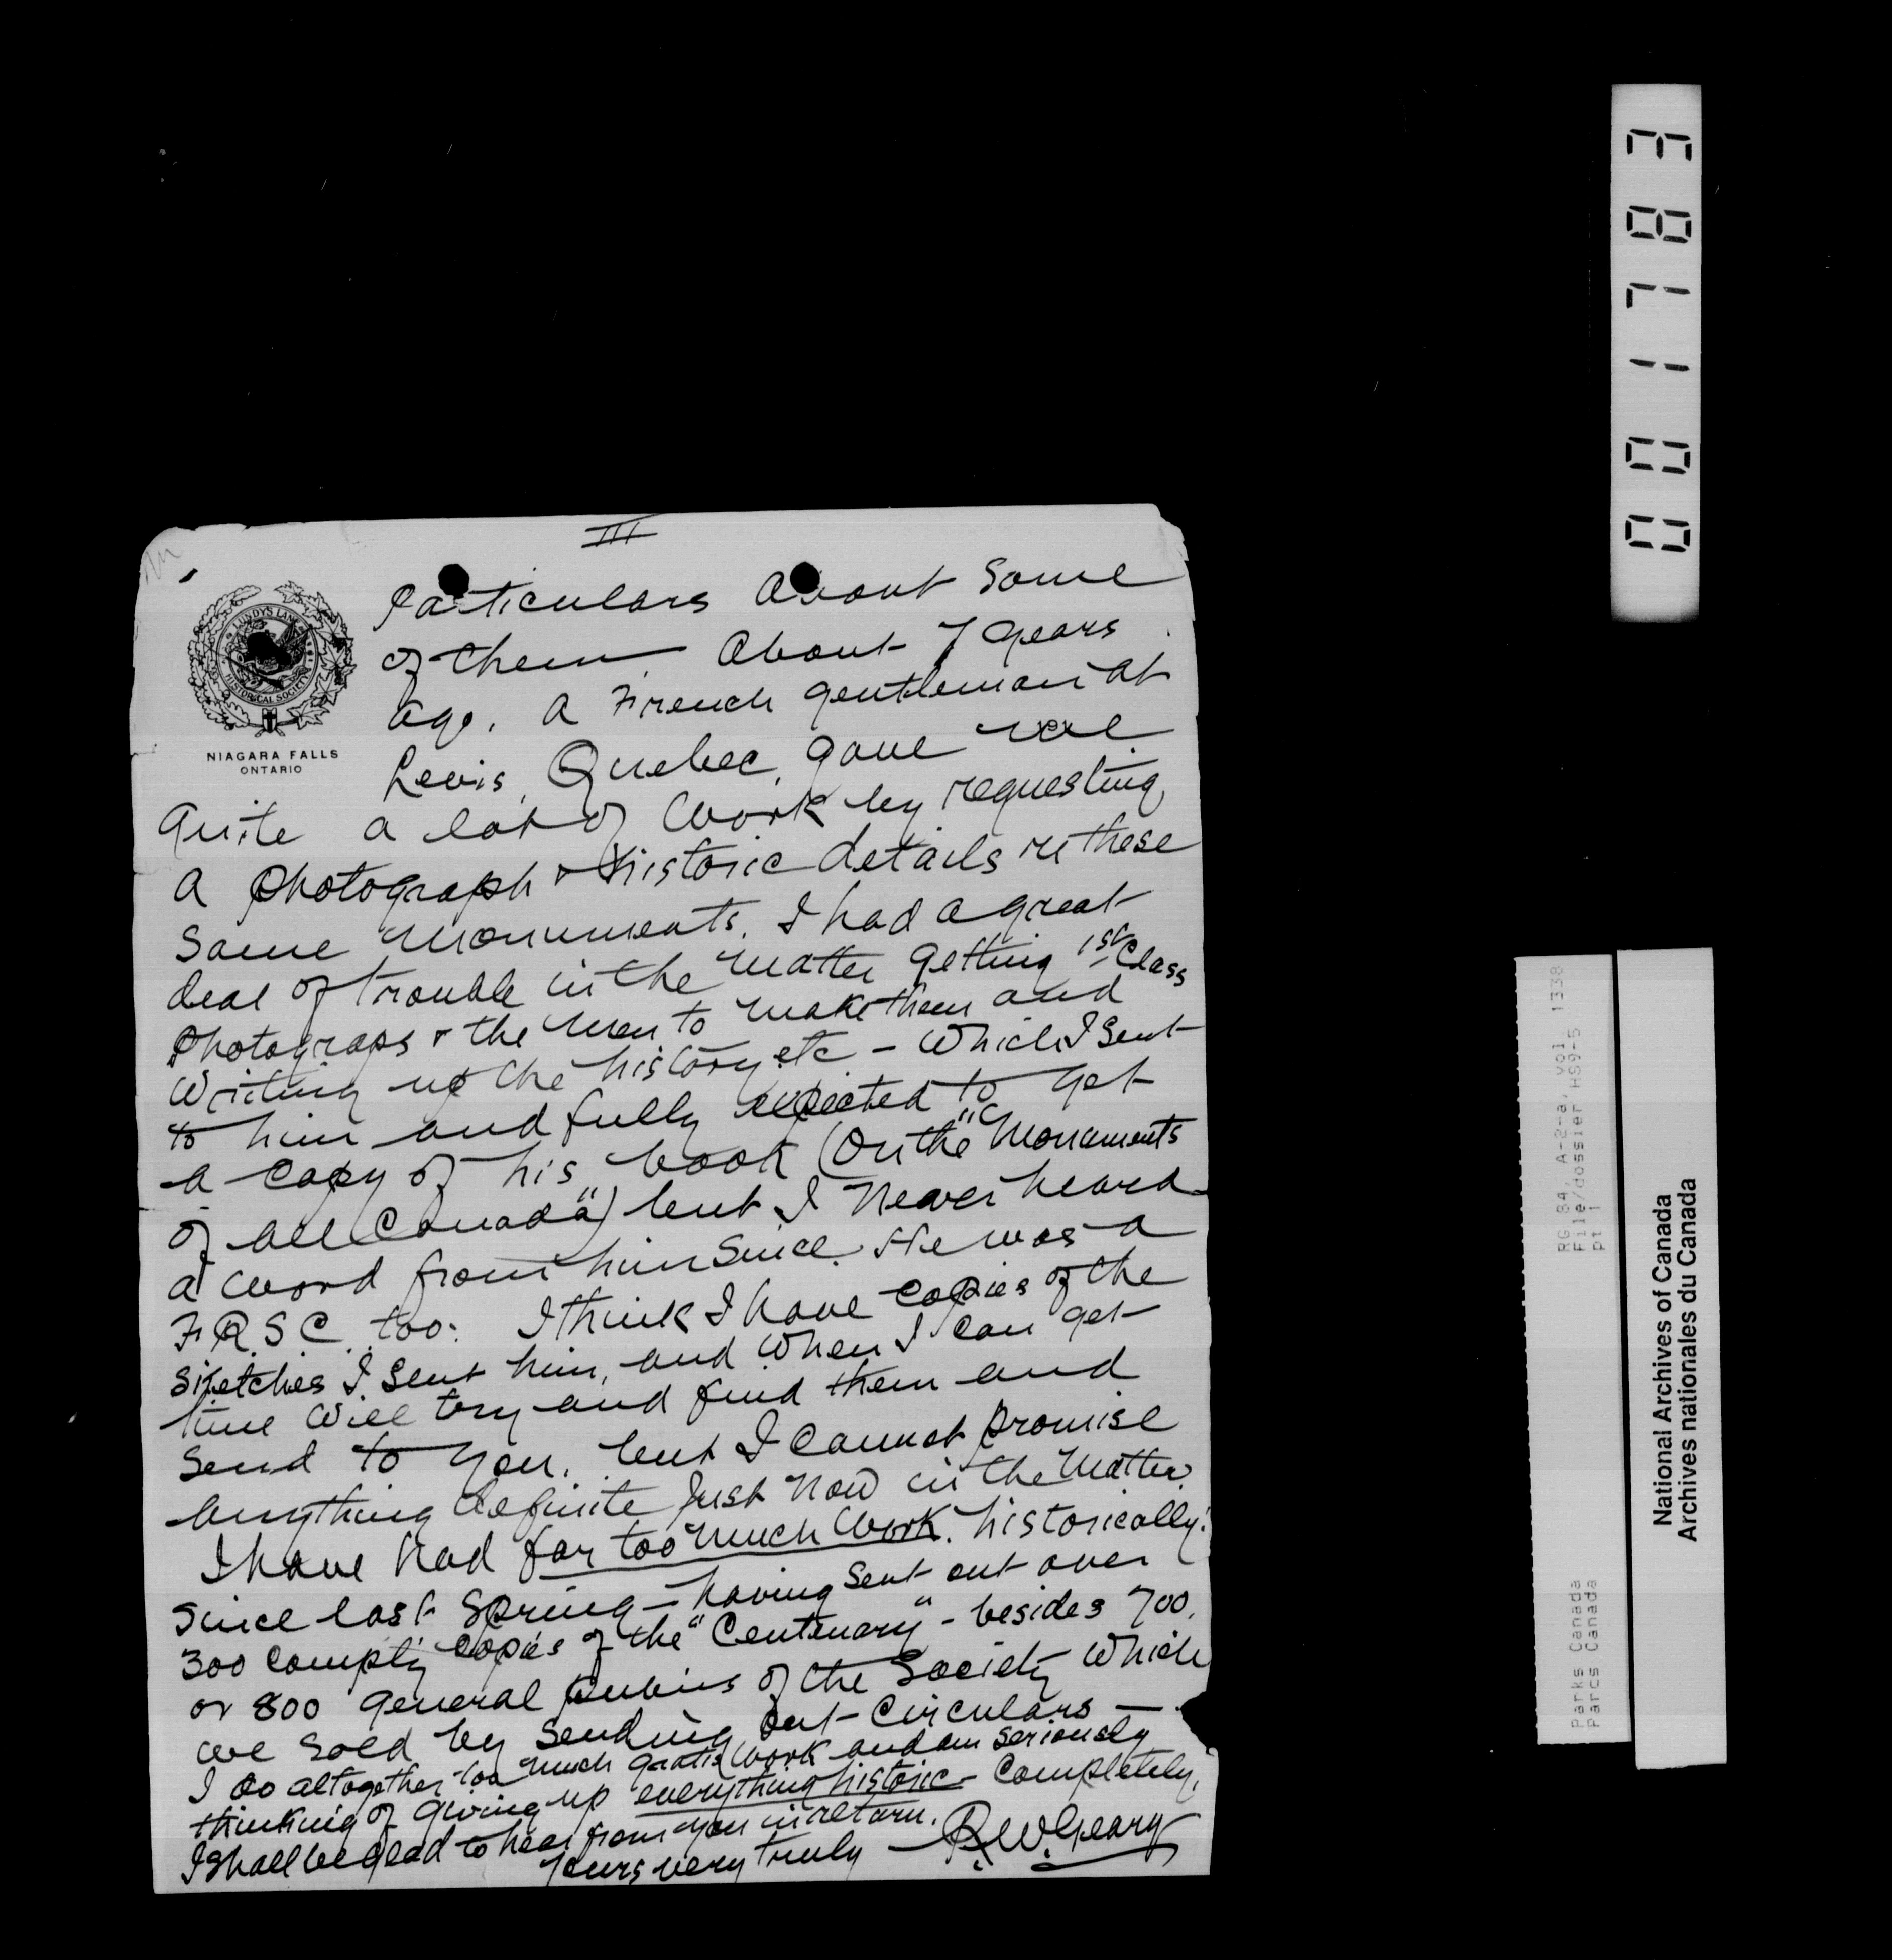 III
LUNDY'S LANE
HISTORICAL SOCIETY
NIAGARA FALLS
ONTARIO
Particulars About Some
of them About 7 years
ago, a French gentleman at
Levis, Quebec, gave me
quite a lot of work by requesting
a photograph & historic details re these
same monuments. I had a great
deal of trouble in the matter getting 1st Class
photograps & the men to make them and
writing up the history etc - which I sent
to him and fully expected to get
a copy of his book (On the "Monuments
of all Canada") but I never heard
a word from him since. He was a
F.R.S.C. too. I think I have copies of the
sketches I sent him, and when I can get
time will try and find them and
send to you, but I cannot promise
anything definite just now in the matter.
I have had far too much work, historically,
since last Spring - having sent out over
300 complty copies of the "Centenary" - besides 700
or 800 general pubns of the Society which
we sold by sending out circulars —
I do altogether too much gratis work and am seriously
thinking of giving up everything historic - completely.
I shall be glad to hear from you in return.
Yours very truly — R.W. Geary
001783
RG 84, A-2-a, vol. 1338
File/dossier HS9-5
pt 1
Parks Canada
Parcs Canada
National Archives of Canada
Archives nationales du Canada